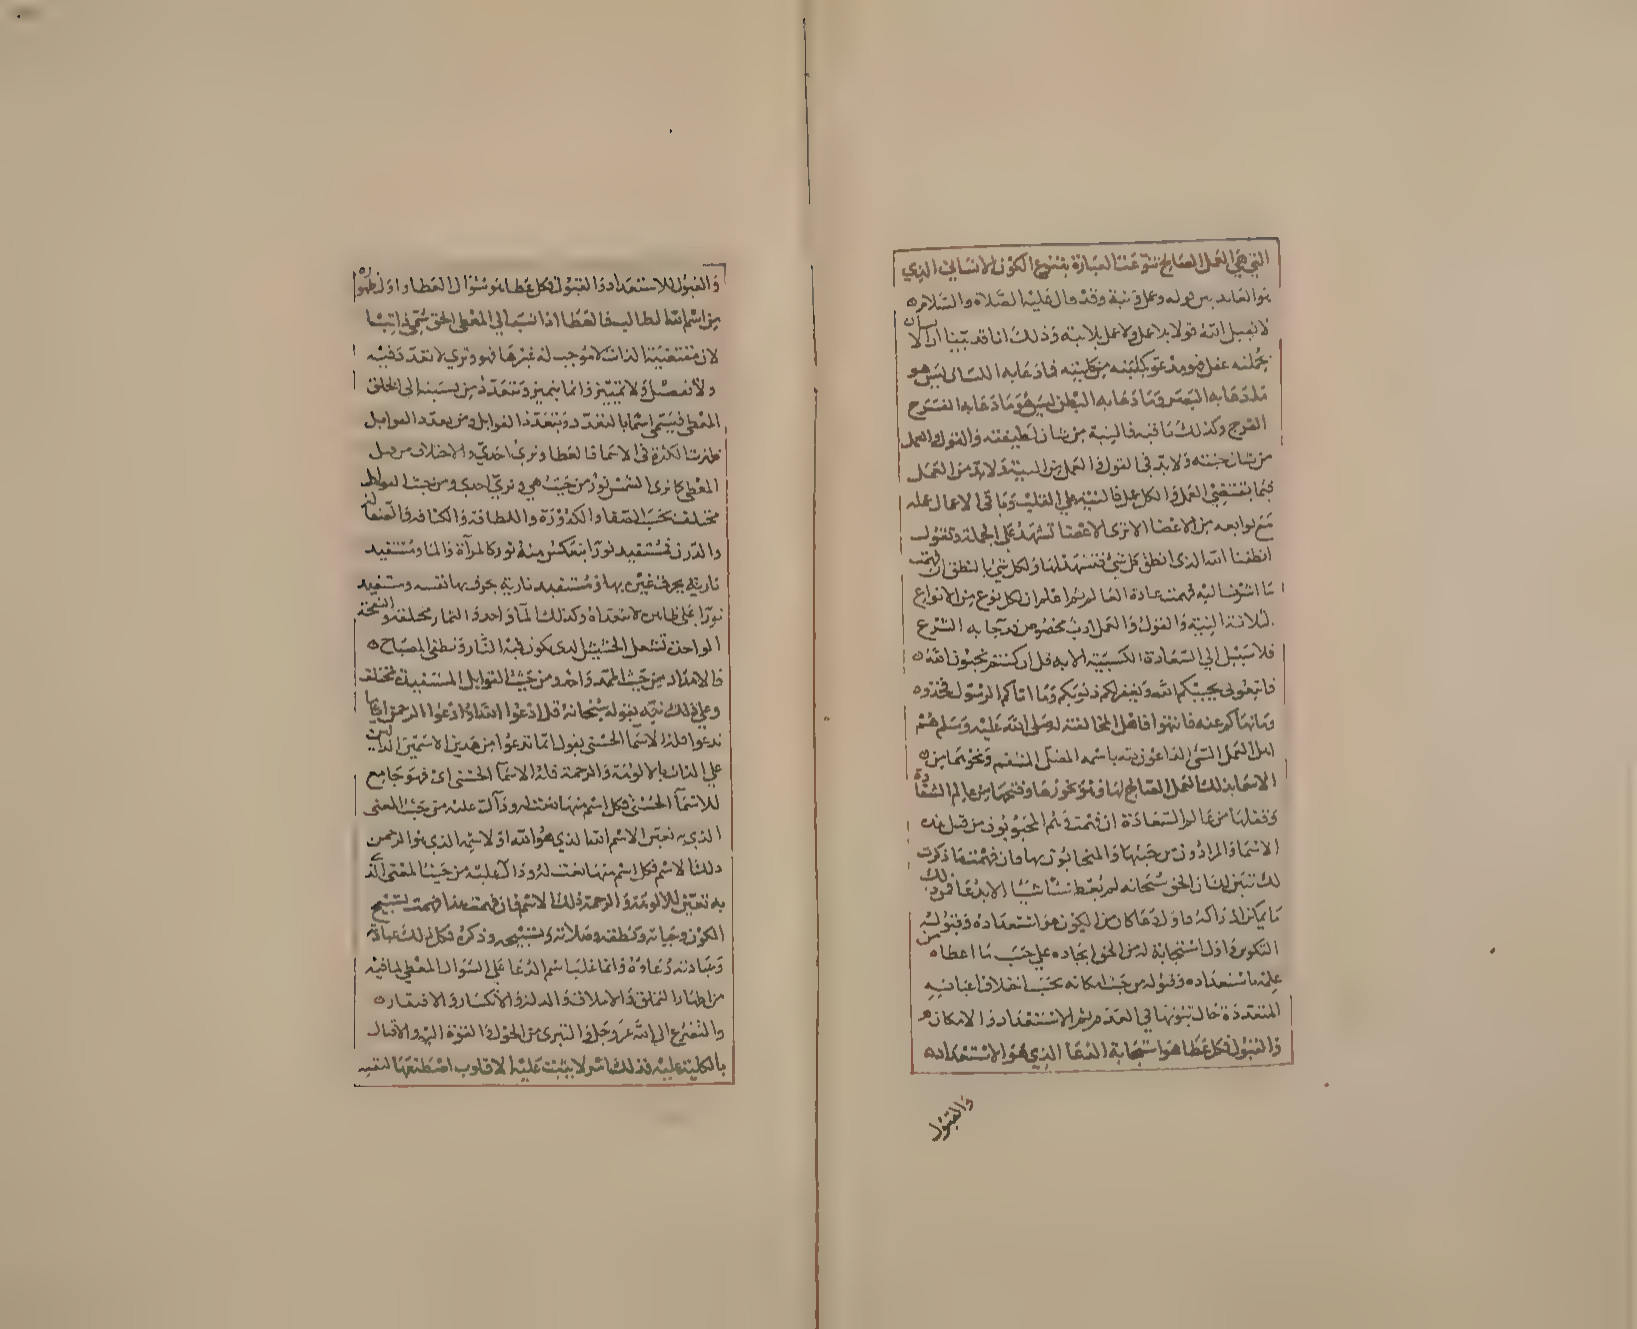 التي هي العمل الصالح تنوعت العبارة بتنوع الكون الانساني الذي
هو العابد بين قوله وعمل ونية وقد قال عليه الصلاة والسلام
لا يقبل الله قولا بلا عمل ولا عملا بلا نية وذلك انا قد بينا ان الانسان
بجملته عقل فهو مدعو بكليته من كليته فما دعا به اللسان ليس هو
ما دعا به البصر وما دعا به البطن ليس هو ما دعا به الفرج
الفرج وكذلك ما فيه فالنية من شان لطيفته والقول والعمل
من شان جثته ولا بد في القول والعمل من النية ولا بد من العمل
بما يقتضي العمل والكل عمل فالنية على القلب وباقي الاعمال عليه
مع توابعه من الاعضا الا ترى الاعضا تشهد على الجملة وتقول
انطقنا الله الذي انطق كل شي فتشهد لها ولكل شي بالنطق ان فهمت
ما اشرنا اليه فهمت عبادة العالم ثم اعلم ان لكل نوع من الانواع
الثلاثة النية والقول والعمل ادب مخصوص قد جا به الشرع
فلا سبيل الى السعادة الكسبية الا به قل ان كنتم تحبون الله
فاتبعوني يحببكم الله ويغفر لكم ذنوبكم وما اتاكم الرسول فخذوه
وما نهاكم عنه فانتهوا فاهل المخالفة له صلى الله عليه وسلم هم
اهل العمل السيئ الداعون به باسمه المضل المنتقم ونحوهما من
الاسما بذلك العمل الصالح لها وهو نحوها وفتحها من عالم الشقاوة
وقفلها من عالم السعادة ان فهمت فهم المحبوبون من قبل هذه
الاسما والمرادون من جهتها والمجابون بها وان فهمت ما ذكرت
لك تبين لك ان الحق سبحانه لم يعط شيا شيا الا بدعا فرد ذلك
ما يمكن ادراكه فاول دعا كان من الكون هو استعداده وقبوله
التكوين واول استجابة له من الحق ايجاده على حسب ما اعطاه من
علمه باستعداده وقبوله من حيث امكانه بحسب اختلاف اعيانه
المتعددة حال ثبوتها في العدم ثم الاستعداد والامكان هو
والقبول فكل عطا هو استجابة الدعا الذي هو الاستعداد
والقبول
والقبول للاستعداد والقبول فكل عطا هو سؤال العطا واول ظهوره
من اسم الله الطالب فالعطا اذا نسب الى المعطي الحق سمي ذاتيا
لان مقتضية الذات لا موجب له غيرها فهو وتري لا تعدد فيه
ولا تفصل ولا تمييز وانما يتميز ويتعدد من نسبته الى الخلق
المعطى فيسمى اسمايا لتعدده وبتعدد القوابل ومن تعدد القوابل
ظهرت الكثرة في الاسما فالعطا وتري احدي والاختلاف من قبل
المعطى كما ترى الشمس نور من حيث هي وتري احدي ومن حيث القوابل
مختلف بحسب الصفا والكدورة واللطافة والكثافة
والدرن فمستفيد نورا ينعكس منه نور كالمرآة والما ومستفيد
نارية يحرق غيره بها ومستفيد نارية يحرق بها نفسه ومستفيد
نورا على ظاهره لاستعداده وكذلك الما واحد والثمار مختلفة والنفخة
الواحدة تشعل الحشيش الذي يكون فيه النار وتطفئ المصباح
فالامداد من حيث الممد واحد ومن حيث القوابل المستفيدة مختلفة
وعلى ذلك نبه بقوله سبحانه قل ادعوا الله او ادعوا الرحمن ايا ما
تدعوا فله الاسما الحسنى يقول انما تدعوا من هذين الاسمين الدالين
على الذات بالالوهية والرحمة فله الاسما الحسنى اي فهو جامع
للاسما الحسنى فكل اسم منها نعت له ودال عليه من حيث المعنى
الذي به تعين الاسم الله الذي هو الله او لاسمه الذي هو الرحمن
ذلك الاسم فكل اسم منها نعت له ودال عليه من حيث المعنى الذي
به تعين للالوهية والرحمة ذلك الاسم فان فهمت هذا فهمت تسبيح
الكون وحياته ونطقه وصلاته وتسبيحه وذكره فكل ذلك عبادة
وعبادته دعاؤه وانما غلب اسم الدعا على السوال المعطي لما فيه
من اظهار التملق والاملاق والذلة والانكسار والافتقار
والتضرع الى الله عز وجل والتبري من الحول والقوة اليه والاقبال
بالكلية عليه فذلك اسر لا يثبت عليه الا قلوب اصطنعها لنفسه